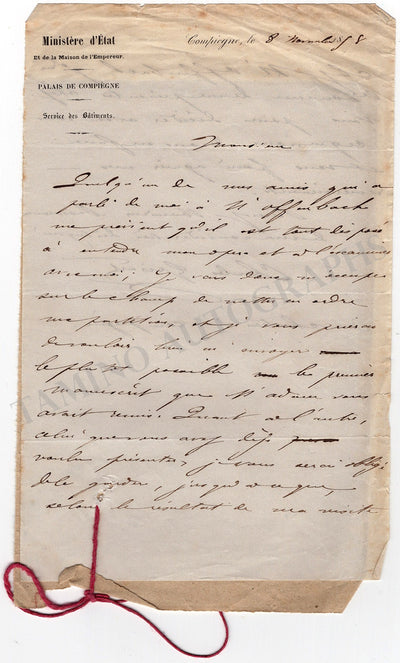 Ministère d'État
Et de la Maison de l'Empereur.
PALAIS DE COMPIÈGNE
Service des Bâtiments.
Compiègne, le 8 Novembre 1858
Monsieur
Quelqu'un de mes amis qui a
parlé de moi à M Offenbach
me prévient qu'il est tout disposé
à entendre mon opera et à l'examiner
avec moi; je vais donc m'occuper
sur le champ de mettre en ordre
ma partition, et je vous prierais
de vouloir bien m'envoyer
le plus possible le premier
manuscrit que M vous
avait remis. Quant à l'autre,
celui que vous avez déjà
voulu présenter, je vous serai obligé
de le garder, jusqu'à ce que,
selon le résultat de ma visite
TAMINO AUTOGRAPHS